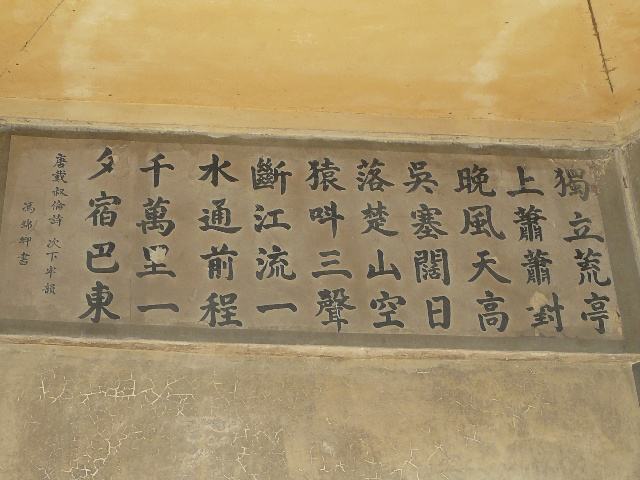 獨立荒亭
上蕭蕭對
晚風天高
吳塞闊日
落楚山空
猿叫三聲
斷江流一
水通前程
千萬里一
夕宿巴東
唐戴叔倫詩 次下牢韻
卿書